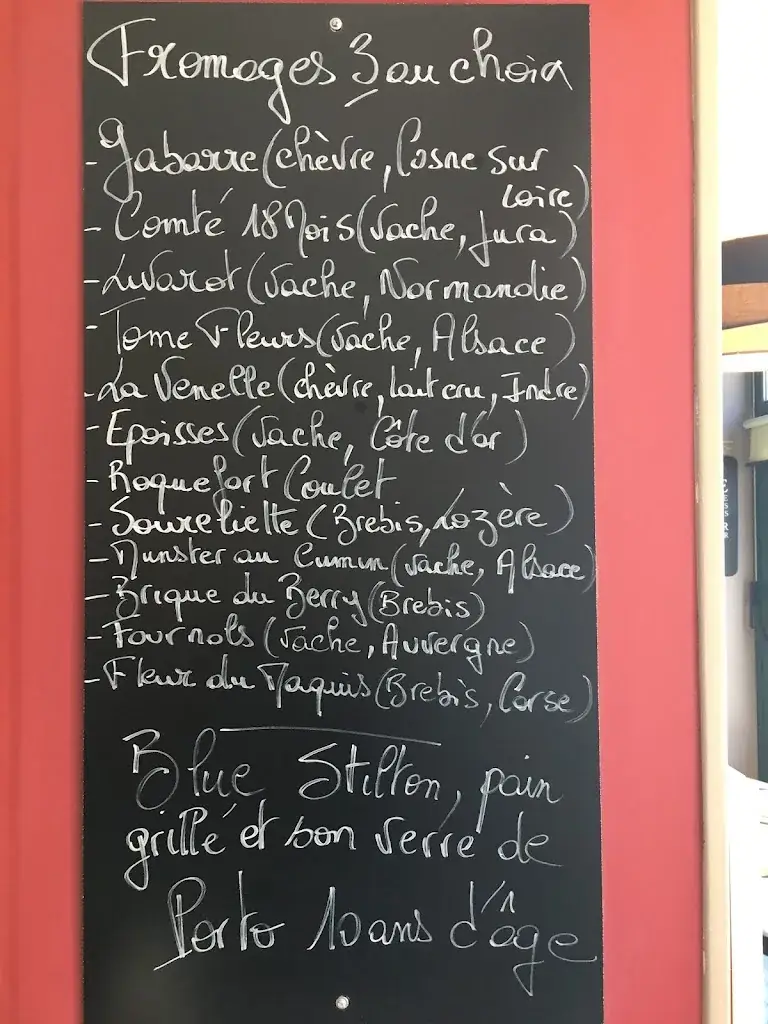 Fromages 3 au choix
- Gabarre (chèvre, Cosne sur
Loire)
- Comté 18 Mois (Vache, Jura)
- Livarot (Vache, Normandie)
- Tome Fleurs (Vache, Alsace)
- La Venelle (chèvre, lait cru, Indre)
- Epoisses (Vache, Côte d'or)
- Roquefort Coulet
- Soureliette (Brebis, Lozère)
- Munster au Cumin (Vache, Alsace)
- Brique du Berry (Brebis)
- Fournols (Vache, Auvergne)
- Fleur du Maquis (Brebis, Corse)
Blue Stilton, pain
grillé et bon verre de
Porto 10 ans d'âge